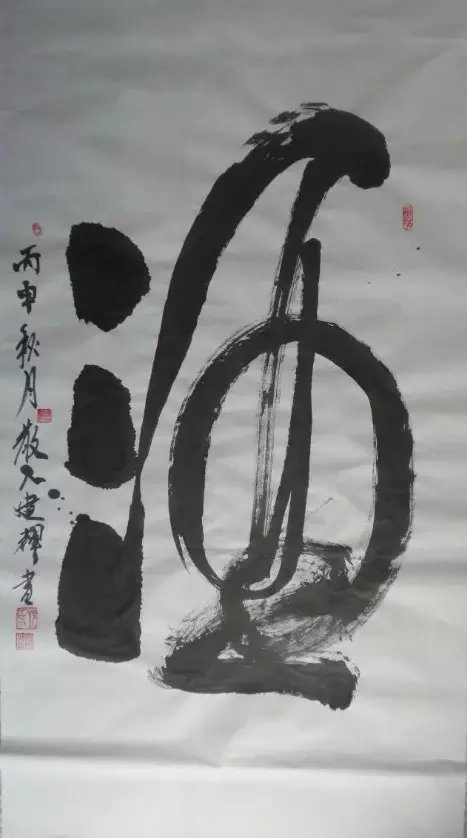 酒
丙申秋月散人建辉書